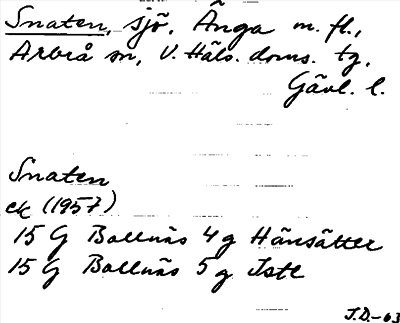 Snaten, sjö, Änga m. fl.,
Arbrå sn, V. Häls. doms. tg,
Gävl. l.
Snaten
ek (1957)
15 G Bollnäs 4 g Hänsätter
15 G Bollnäs 5 g Iste
J.D.-63